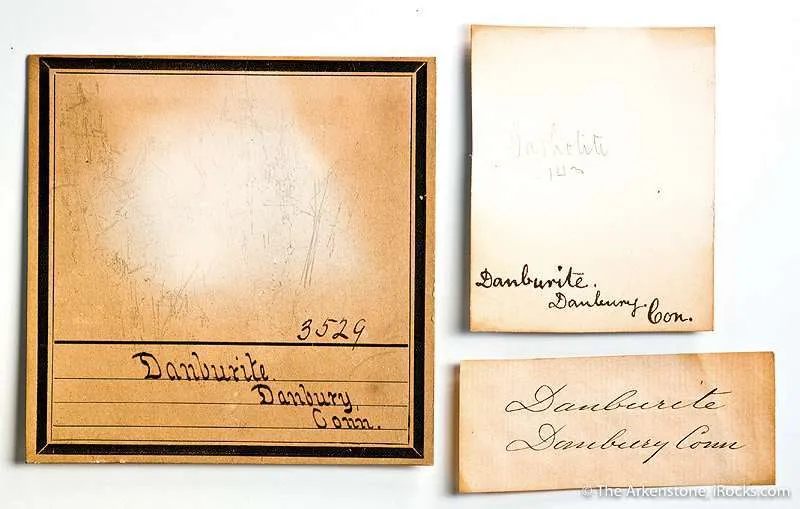 3529
Danburite
Danbury,
Conn.
Danburite.
Danbury
Con.
Danburite
Danbury Conn
© The Arkenstone, iRocks.com